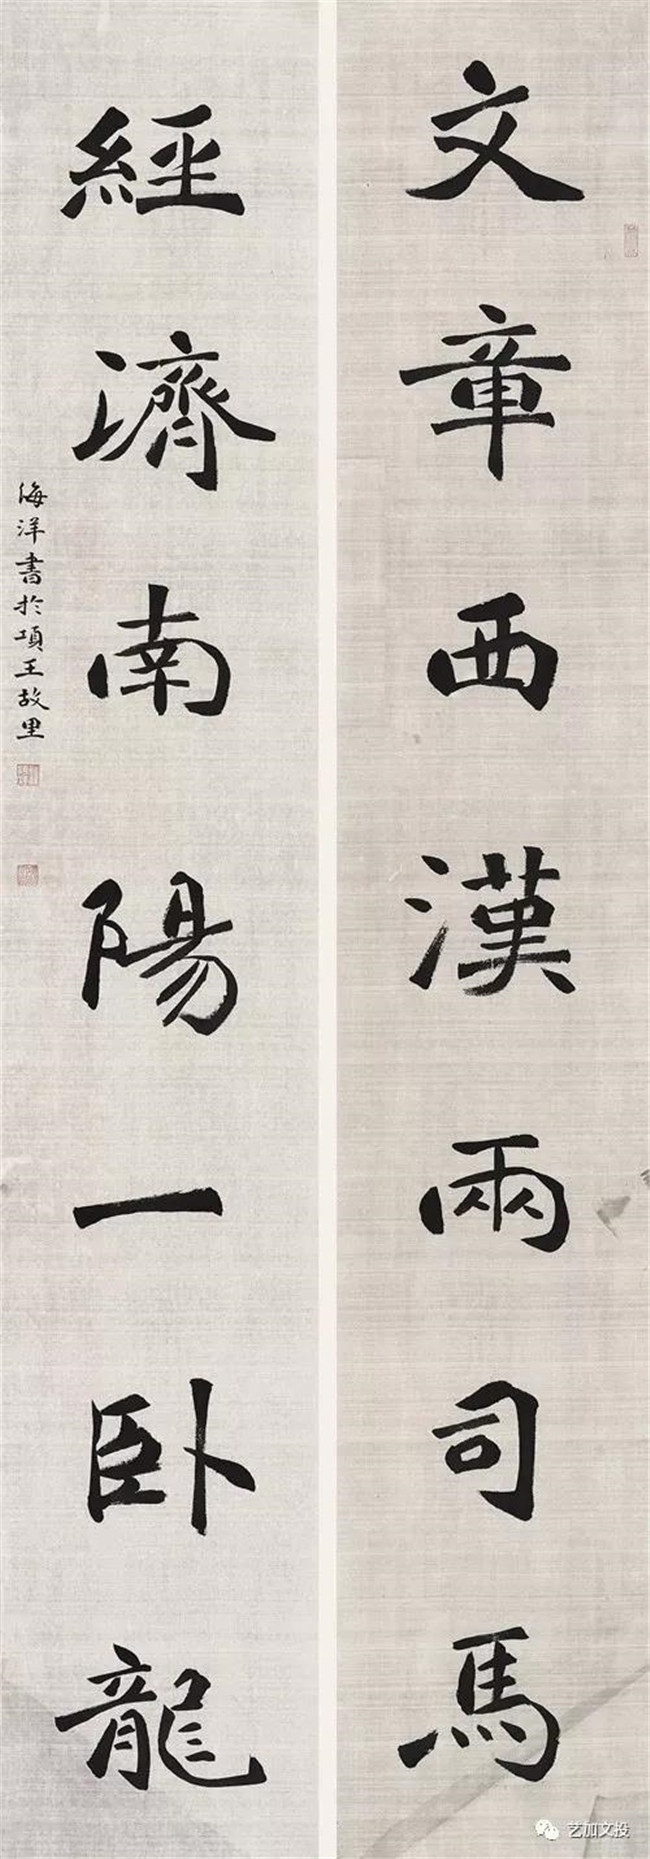 文章西漢兩司馬
經濟南陽一卧龍
海洋書於項王故里
艺加文投